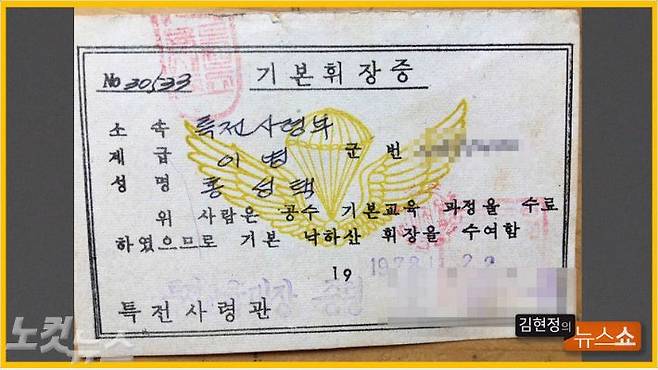 No 30533
기본휘장증
소속 특전사령부
계급 이병 군번
성명 홍성택
위 사람은 공수 기본교육 과정을 수료
하였으므로 기본 낙하산 휘장을 수여함
19 1978 11 22
특전사령관
노컷뉴스
김현정의 뉴스쇼